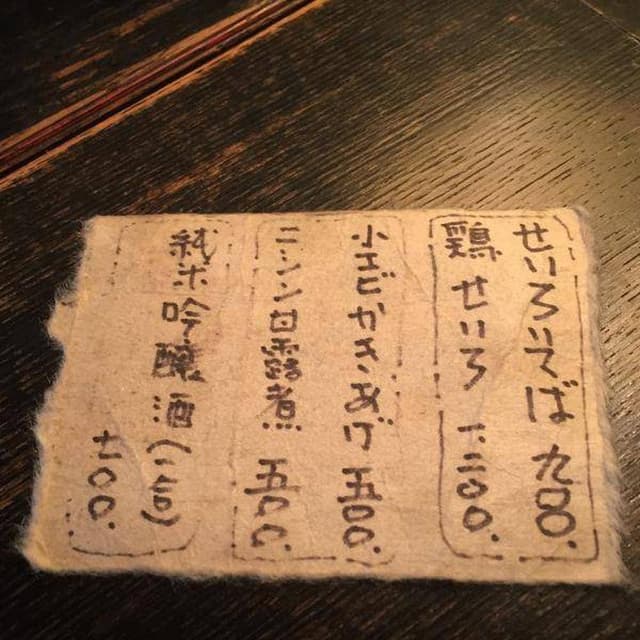 せいろそば 九〇〇.
鶏せいろ 一.二〇〇.
小エビかきあげ 五〇〇.
ニシン甘露煮 五〇〇.
純米吟醸酒(一合)
七〇〇.